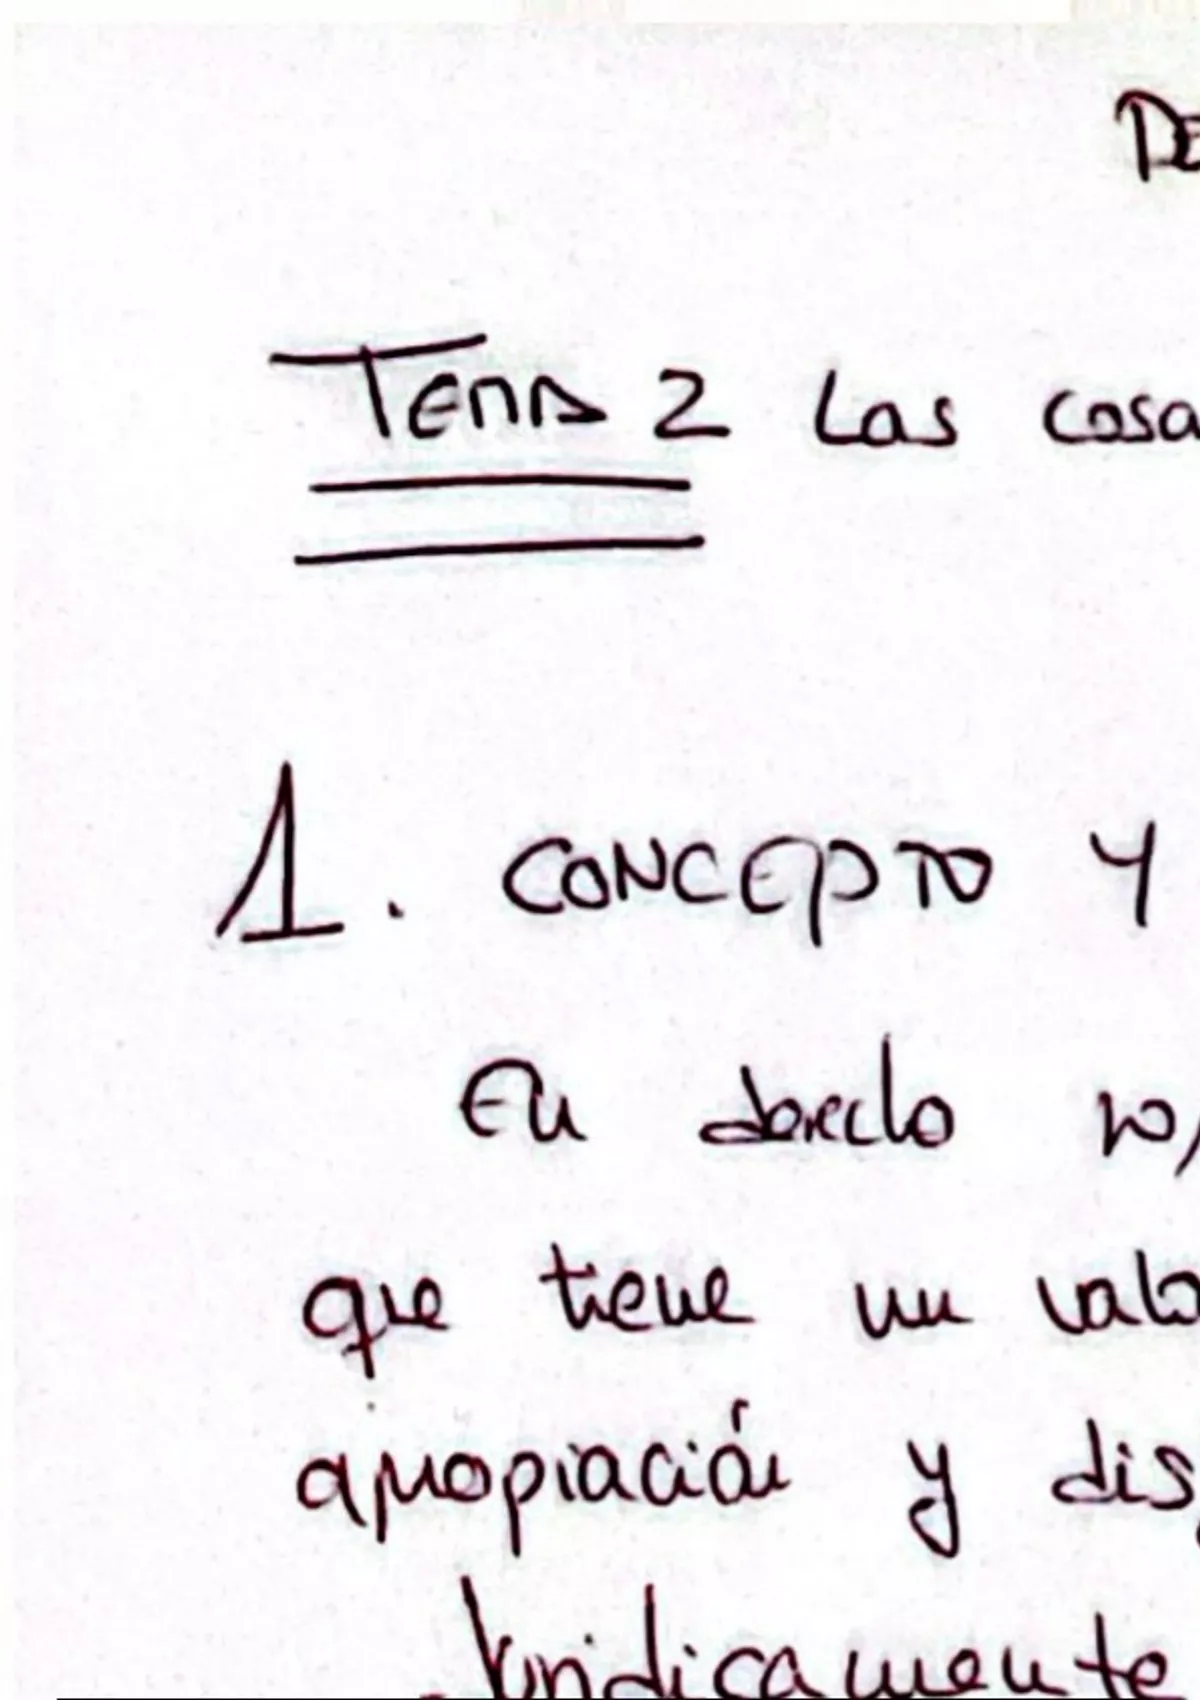 DE
TEMA 2 Las cosa
1. CONCEPTO Y
En derecho ro
que tiene un valo
apropiación y dis
Jurídicamente